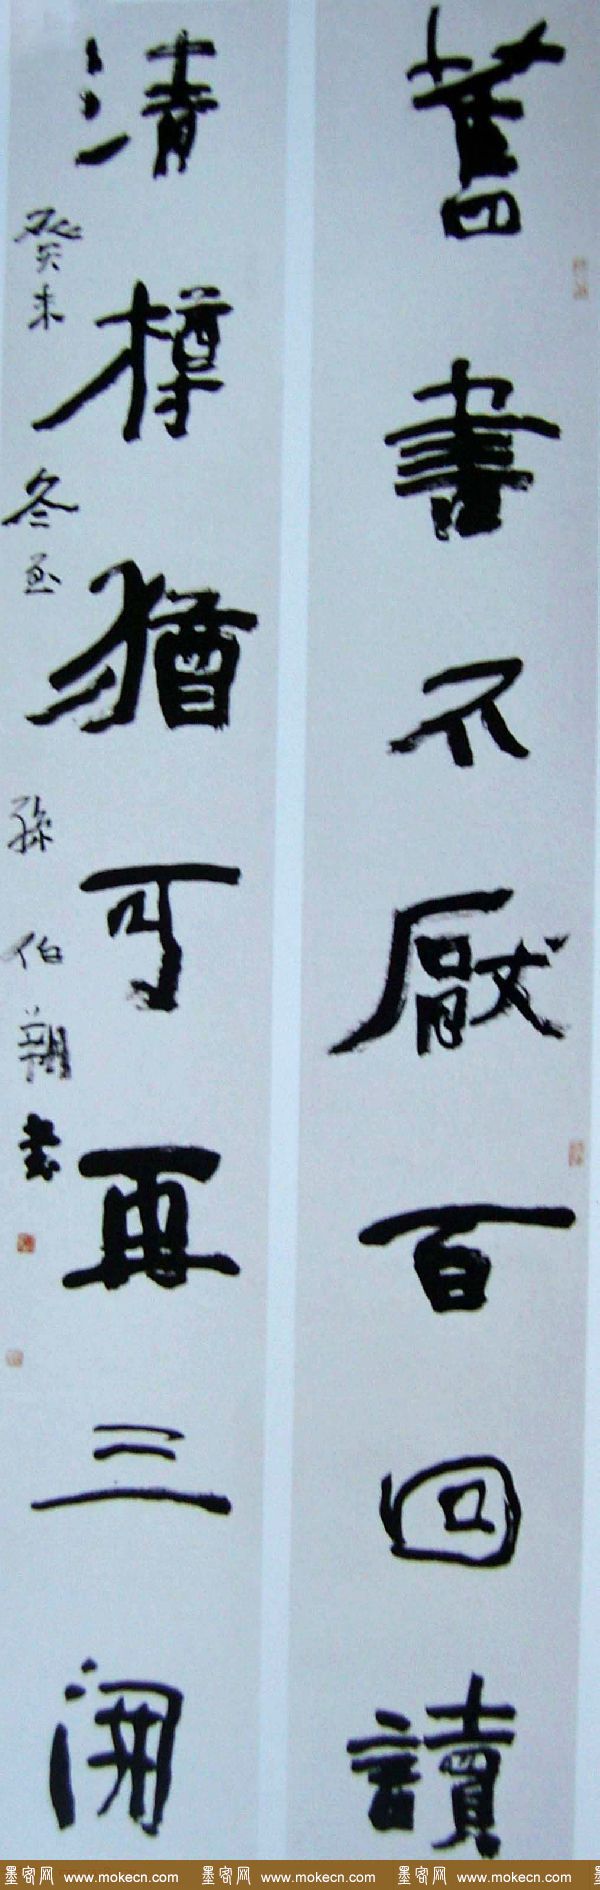 舊書不厭百回讀
清樽猶可再三開
癸未冬至孫伯翔書
墨客网 www.mokecn.com 墨客网 www.mokecn.com 墨客网 www.mokecn.com